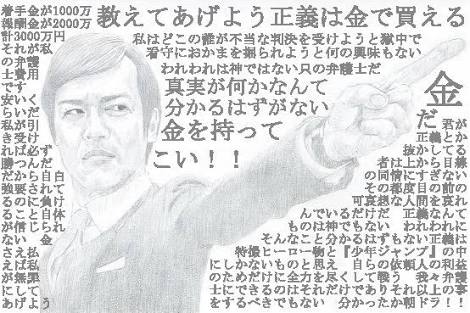 着手金が1000万
報酬金が2000万
計3000万円
それが私
の弁護
士費用
です
安いく
らいだ
私が引
き受け
れば必ず
勝つんだ
だから自白
強要されて
るのに負け
ること自体
が信じられ
ない 金
さえ払
えば私
が無罪
にして
あげよう
教えてあげよう正義は金で買える
私はどこの誰が不当な判決を受けようと獄中で
看守におかまを掘られようと何の興味もない
われわれは神ではない只の弁護士だ
真実が何かなんて
分かるはずがない
金を持って
こい！！
金
だ 君が
正義とか
抜かしてる
者は上から目線
の同情にすぎない
その都度目の前の
可哀想な人間を哀れ
んでいるだけだ 正義なんて
ものは神でもない われわれに
そんなこと分かるはずもない正義は
特撮ヒーロー物と『少年ジャンプ』の中
にしかないものと思え 自らの依頼人の利益
のためだけに全力を尽くして戦う 我々弁護
士にできるのはそれだけであり それ以上の事
をするべきでもない 分かったか朝ドラ！！